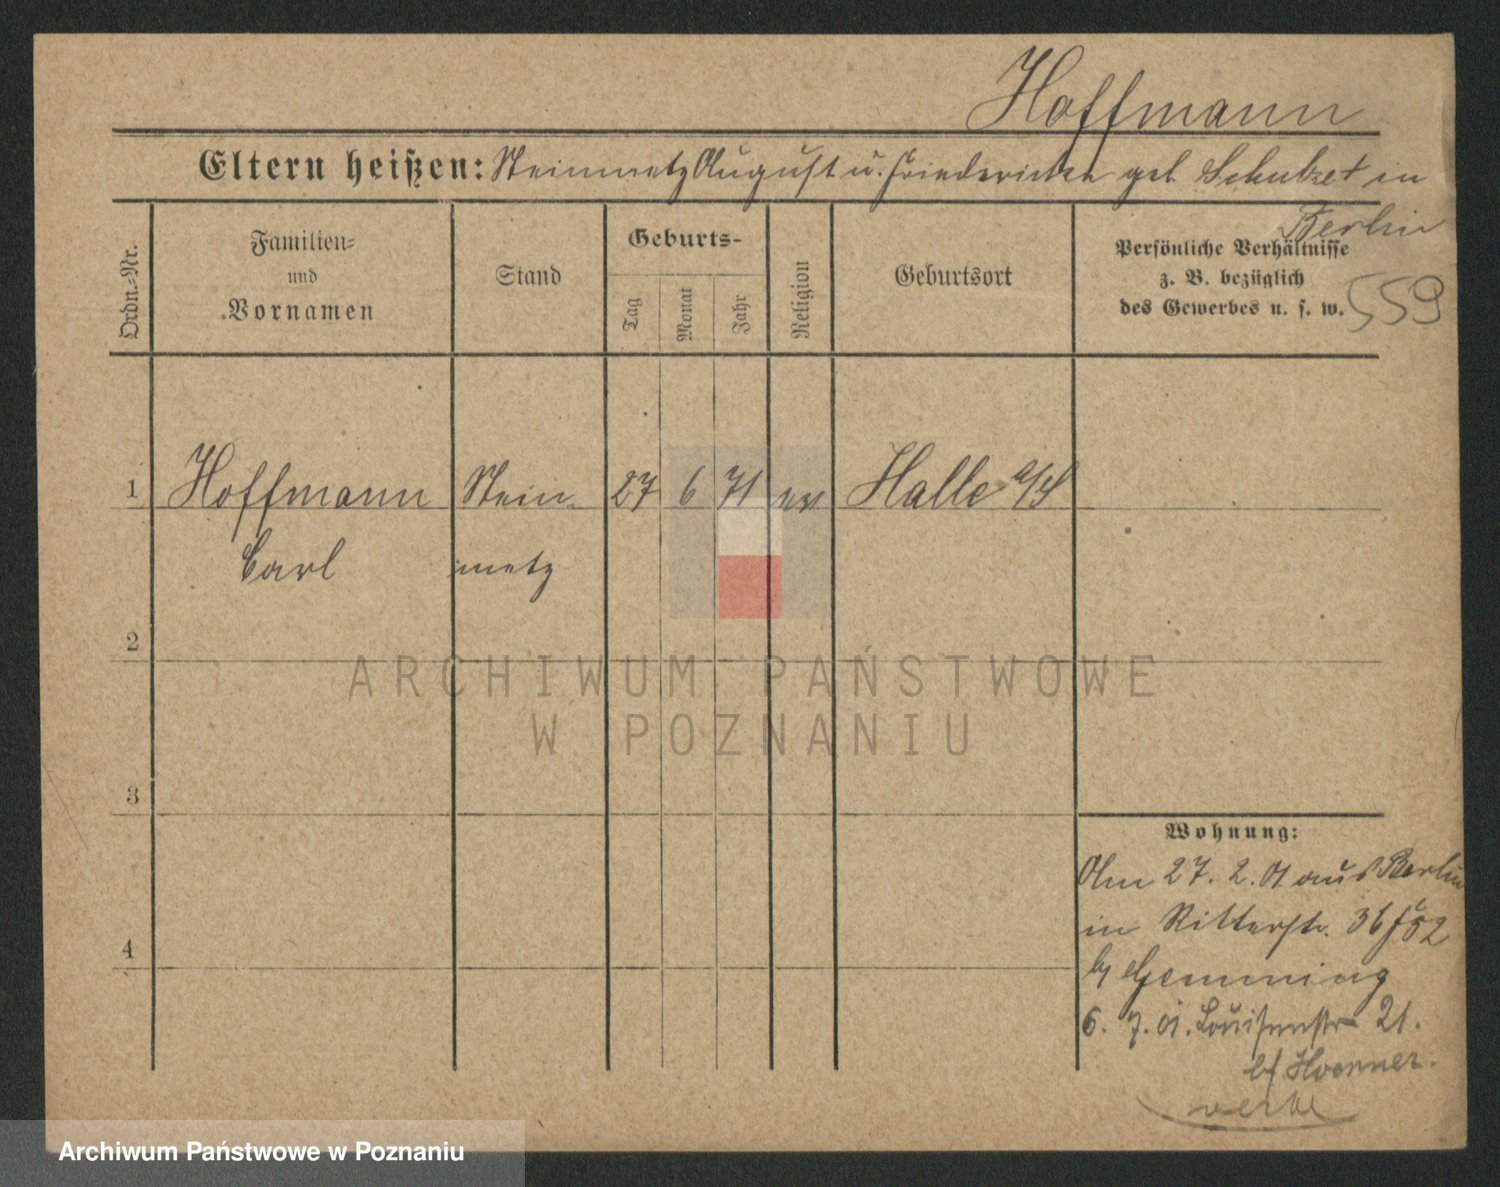 Hoffmann
Eltern heißen: Steinmetz August u. Friedericke geb Schulze † in
Berlin
Ordn.-Nr.
Familien-
und
Vornamen
Stand
Geburts-
Tag
Monat
Jahr
Religion
Geburtsort
Persönliche Verhältnisse
z. B. bezüglich
des Gewerbes u. s. w.
559
1 Hoffmann Stein- 27 6 71 ev Halle a/S
Carl metz
2
3
4
Wohnung:
Am 27. 2. 01 aus Berlin
in Ritterstr. 36
b/ Gemming
6. 7. 01. Louisenstr 21.
b/ Hoerner.
ARCHIWUM PAŃSTWOWE
W POZNANIU
Archiwum Państwowe w Poznaniu